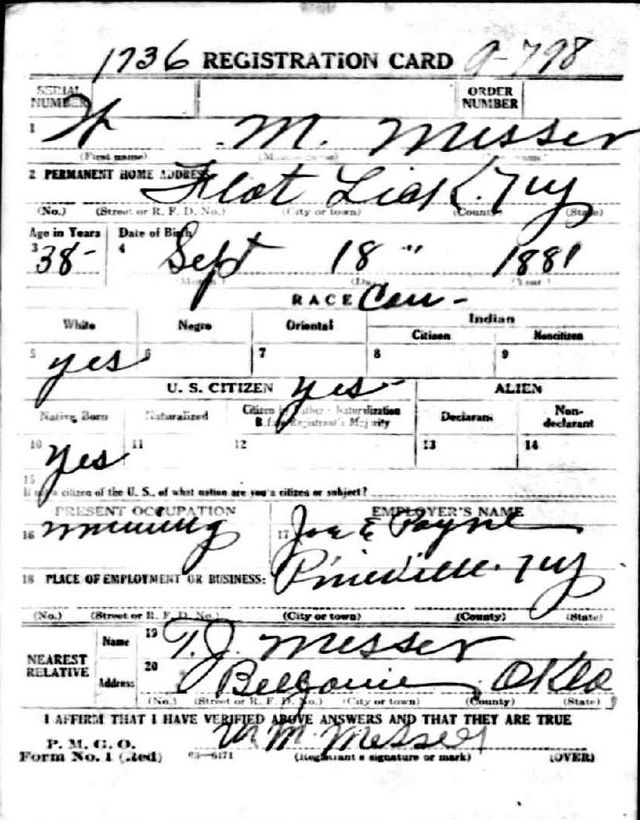 1736 REGISTRATION CARD 9-798
SERIAL NUMBER ORDER NUMBER
1 W M. Messer
(First name) (Middle name) name)
2 PERMANENT HOME ADDRESS Flat Lick. Ky
(No.) (Street or R. F. D. No.) (City or town) (County) (State)
Age in Years Date of Birth
3 38- 4 Sept 18" 1881
(Day) (Year.)
RACE Cau-
White Negro Oriental Indian
Citizen Noncitizen
5 yes 6 7 8 9
U. S. CITIZEN yes- ALIEN
Native Born Naturalized Citizen by Father's Naturalization Before Registrant's Majority Declarant Non-declarant
10 yes 11 12 13 14
15
If not a citizen of the U. S., of what nation are you a citizen or subject?
PRESENT OCCUPATION EMPLOYER'S NAME
16 mining 17 Joe E Payne
18 PLACE OF EMPLOYMENT OR BUSINESS: Pineville. Ky
(No.) (Street or R. F. D. No.) (City or town) (County) (State)
NEAREST RELATIVE Name 19 T. J. Messer
Address 20 Okla
(No.) (Street or R. F. D. No.) (City or town) (County) (State)
I AFFIRM THAT I HAVE VERIFIED ABOVE ANSWERS AND THAT THEY ARE TRUE
P. M. G. O.
Form No. 1 (Red) 03-6171 W M Messer
(Registrant's signature or mark) (OVER)